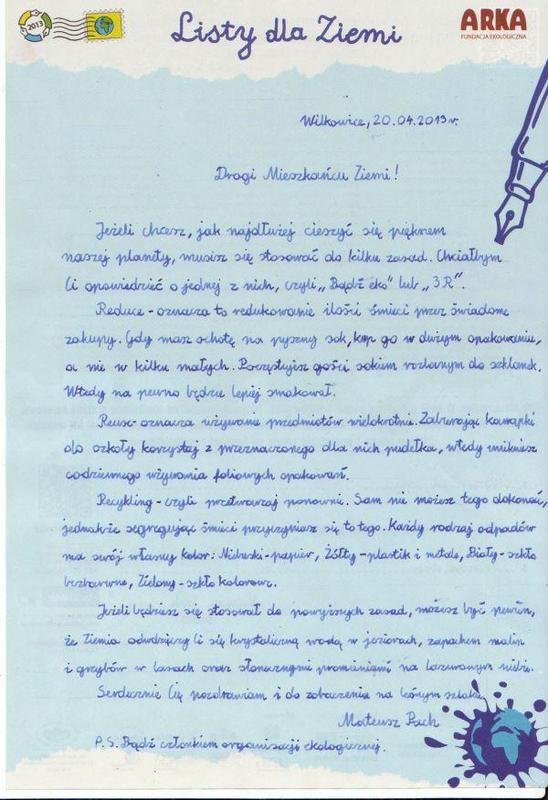 2013
Listy dla Ziemi
ARKA
FUNDACJA EKOLOGICZNA
Wilkowice, 20.04.2013r.
Drogi Mieszkańcu Ziemi!
Jeżeli chcesz, jak najdłużej cieszyć się pięknem
naszej planety, musisz się stosować do kilku zasad. Chciałbym
Ci opowiedzieć o jednej z nich, czyli „Bądź eko" lub „3R".
Reduce - oznacza to redukowanie ilości śmieci przez świadome
zakupy. Gdy masz ochotę na pyszny sok, kup go w dużym opakowaniu,
a nie w kilku małych. Poczęstujesz gości sokiem rozlanym do szklanek.
Wtedy na pewno będzie lepiej smakował.
Reuse - oznacza używanie przedmiotów wielokrotnie. Zabierając kanapki
do szkoły korzystaj z przeznaczonego dla nich pudełka, wtedy unikniesz
codziennego używania foliowych opakowań.
Recykling - czyli przetwarzaj ponownie. Sam nie możesz tego dokonać,
jednakże segregując śmieci przyczyniasz się to tego. Każdy rodzaj odpadów
ma swój własny kolor: Niebieski - papier, Żółty - plastik i metale, Biały - szkło
bezbarwne, Zielony - szkło kolorowe.
Jeżeli będziesz się stosował do powyższych zasad, możesz być pewien,
że Ziemia odwdzięczy Ci się krystaliczną wodą w jeziorach, zapachem malin
i grzybów w lasach oraz słonecznymi promieniami na lazurowym niebie.
Serdecznie Cię pozdrawiam i do zobaczenia na leśnym szlaku.
Mateusz Pach
P.S. Bądź członkiem organizacji ekologicznej.